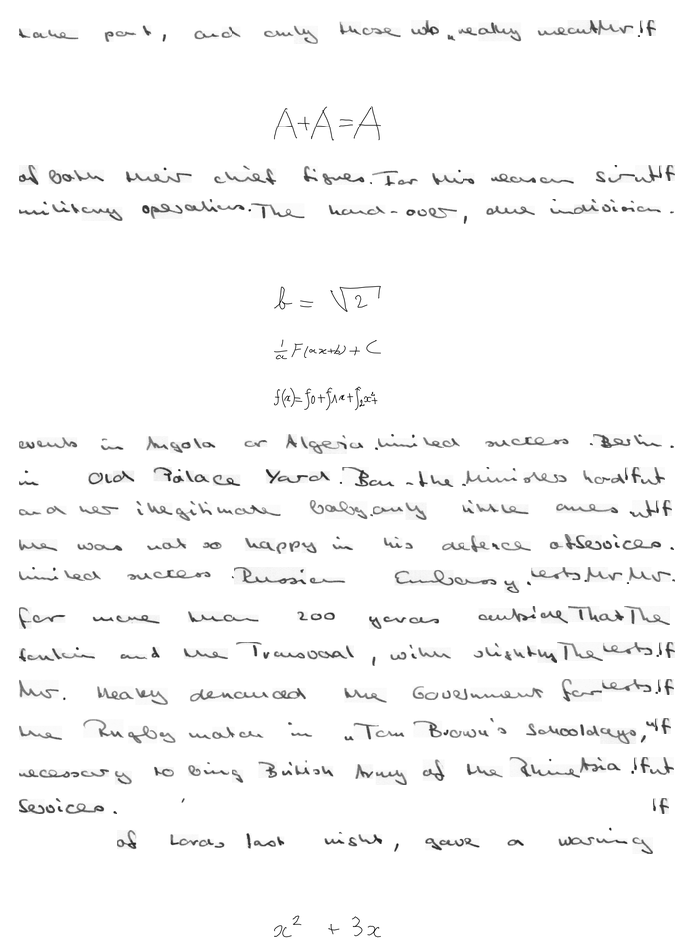 take part, and only those who "really meant Mr. If
A+A=A
of both their chief figures. For this reason Sir
military operations. The hand-over, due indivision.
b = √2
1/a F(ax+b) + C
f(x)=f0+f1x+f2x²+
events in Angola or Algeria. limited success. Berlin.
in Old Palace Yard. Ban the Ministers hard
and her illegitimate baby. only little ones
He was not so happy in his defence of Services.
limited success. Russian Embassy. tests. Mr. Mr. Mr.
for more than 200 yards outside That The
tonkin and the Transvaal, with slightly The tests. If
Mr. Healey denounced the Government for tests. If
the Rugby match in "Tom Brown's Schooldays,"
necessary to bring British Army of the Rhine Asia.
Services. If
of Lords last night, gave a warning
x² + 3x